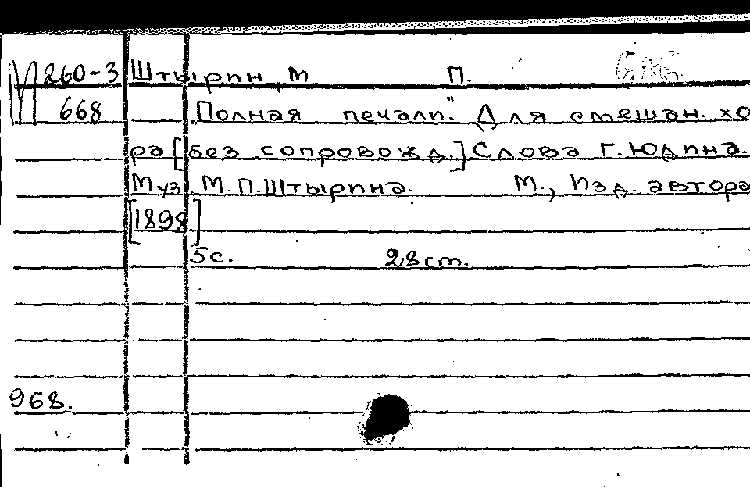 М 260-3 Штырин, М П.
668 „Полная печали." Для смешан. хо
ра [без сопровожд.] Слова Г. Юдина.
Муз. М.П. Штырина. М., Изд. автора
[1898]
5с. 28 см.
968.